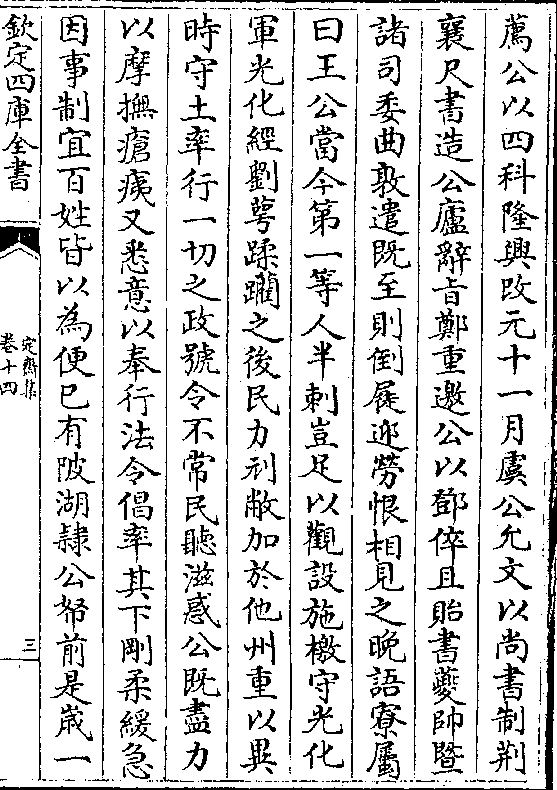 薦公以四科隆興改元十一月虞公允文以尚書制荆
襄尺書造公廬辭㫖鄭重邀公以鄧倅且貽書夔帥暨
諸司委曲敦遣既至則倒屣迎勞恨相見之晚語寮屬
曰王公當今第一等人半刺豈足以觀設施檄守光化
軍光化經劉萼蹂躪之後民力刓敝加於他州重以異
時守土率行一切之政號令不常民聽滋惑公既盡力
以摩撫瘡痍又悉意以奉行法令倡率其下剛柔緩急
因事制宜百姓皆以為便巳有陂湖隷公帑前是歲一
欽定四庫全書
定齋集
卷十四
三